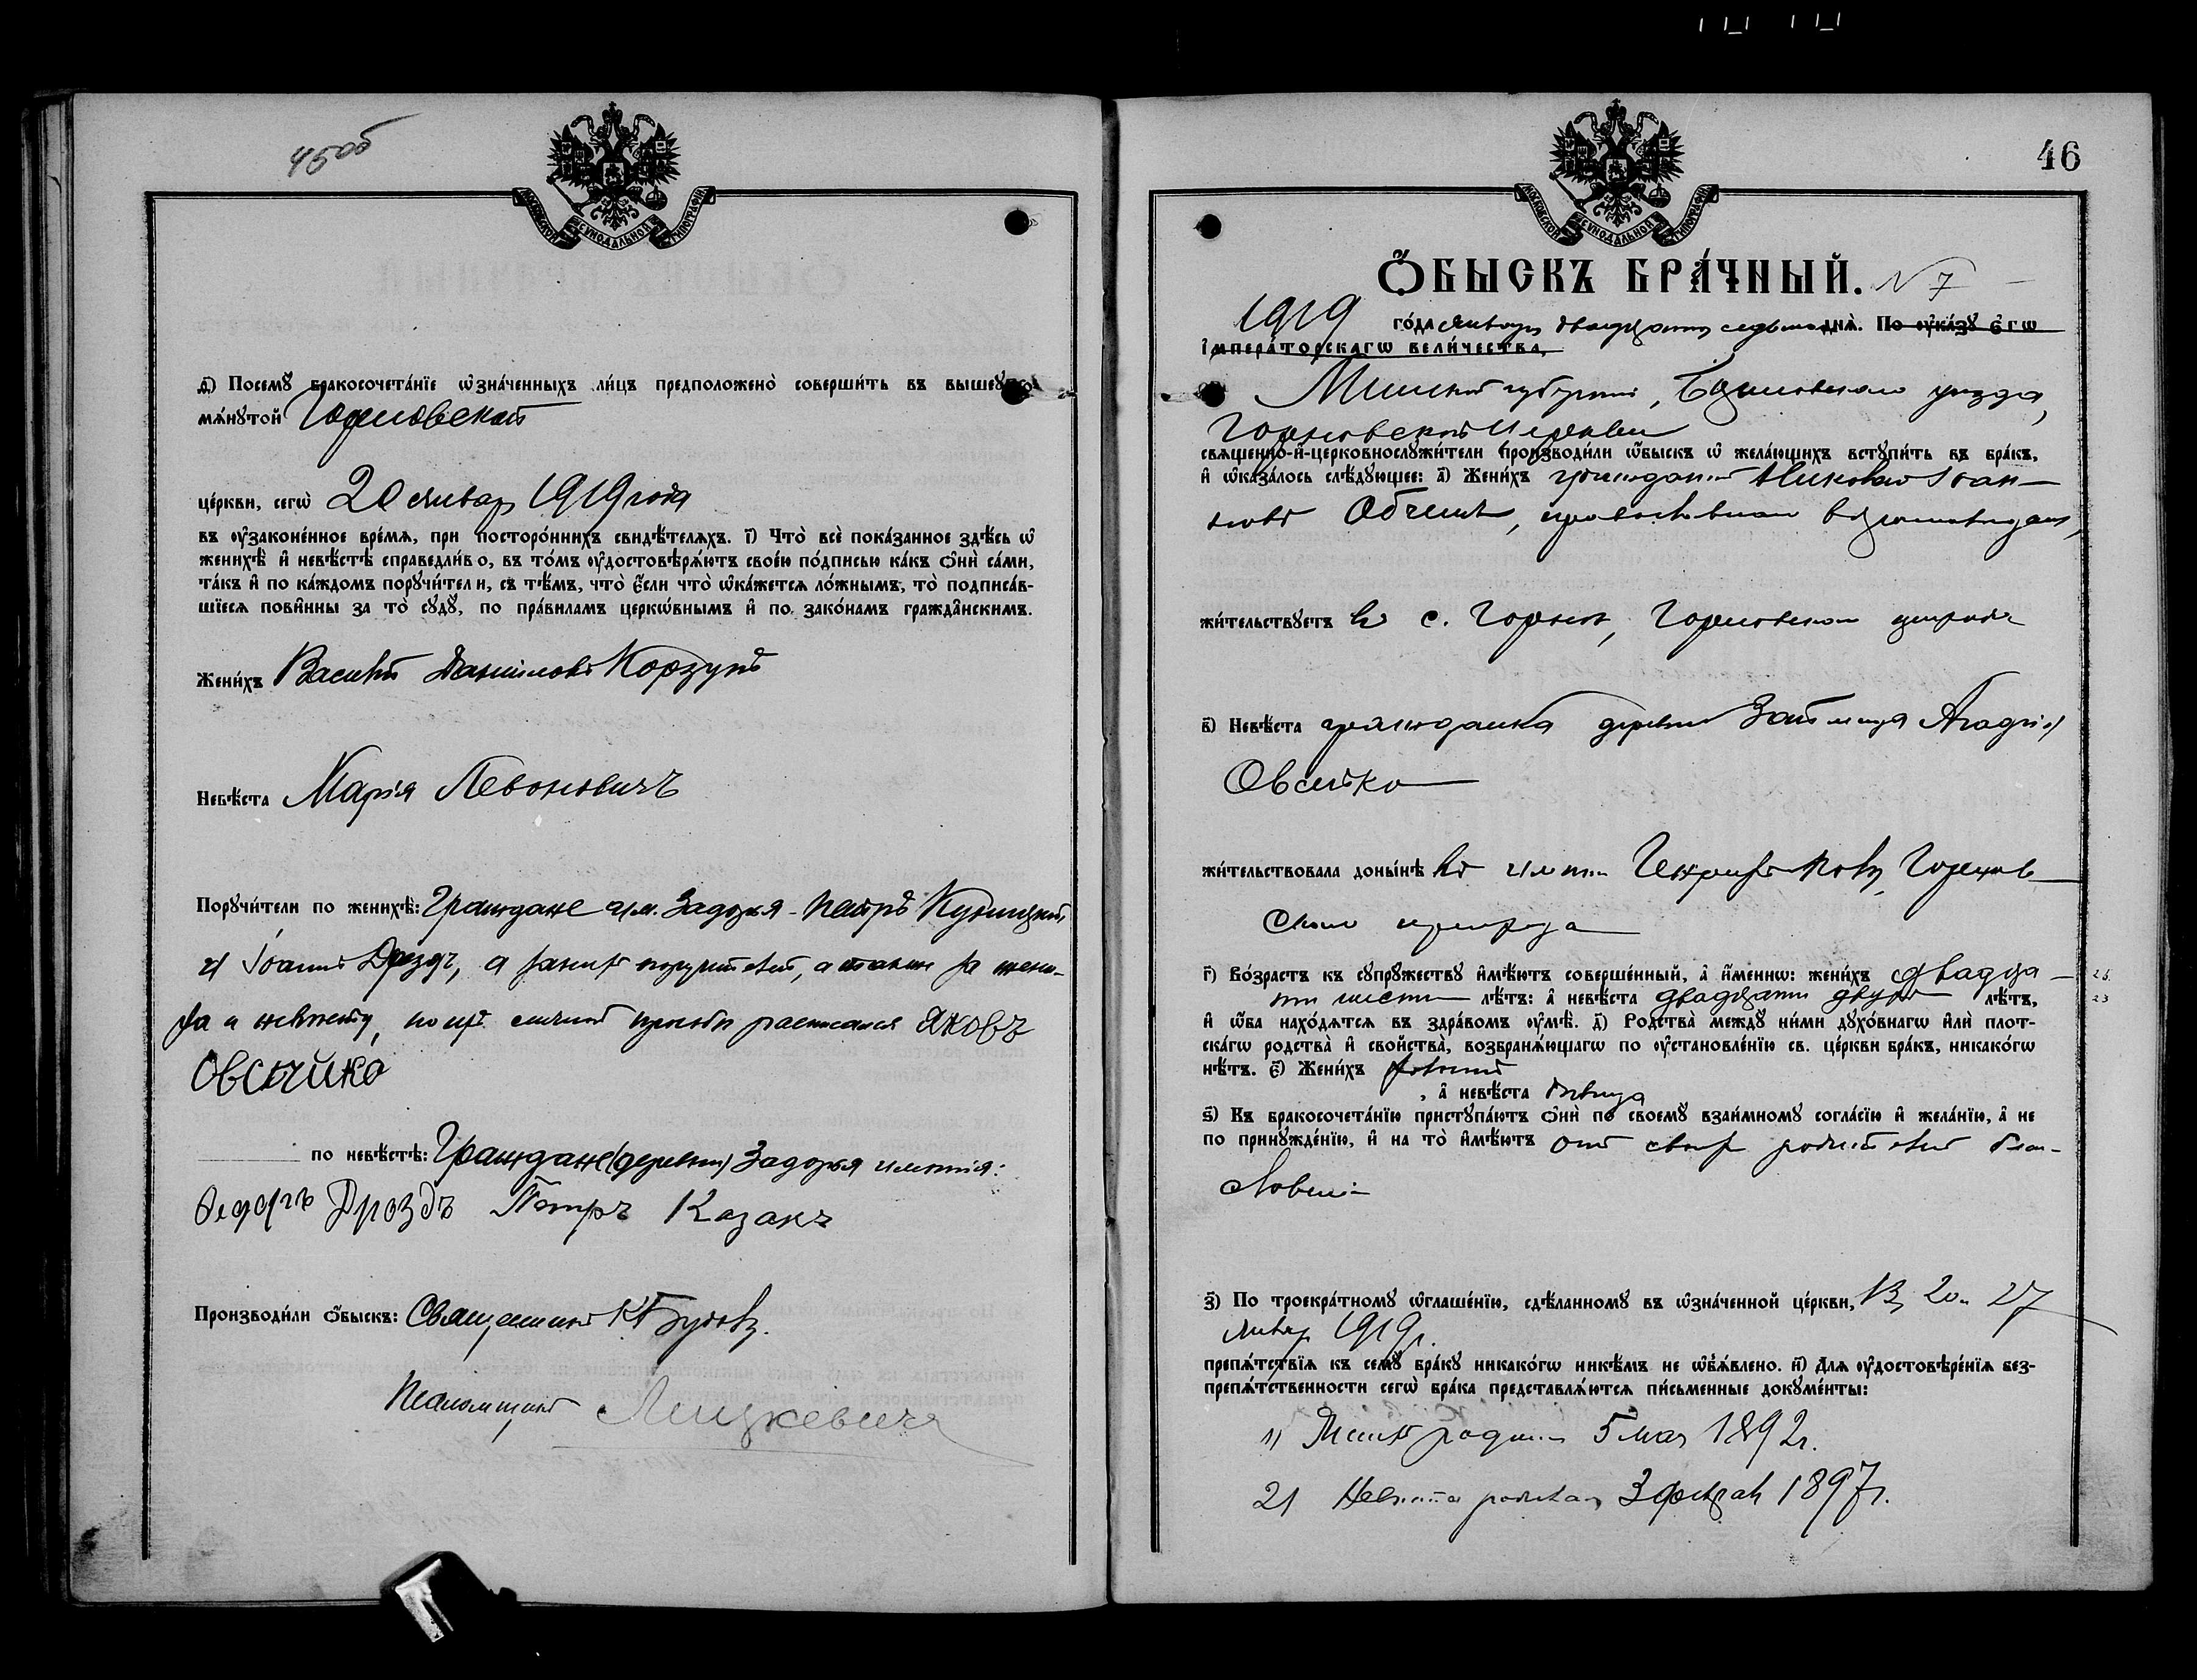 45об
МОСКОВСКОЙ СѴНОДАЛЬНОЙ ТИПОГРАФІИ
д҃) Посемꙋ̀ бракосочета́нїе ѡ҆зна́ченныхъ ли́цъ предположено̀ соверши́ть въ вышеꙋпо
мѧ́нꙋтой Горновской
це́ркви, сегѡ̀ 20 январ 1919 года
въ ᲂу҆законе́нное вре́мѧ, при посторо́ннихъ свидѣ́телѧхъ. і҃) Что̀ всѐ пока́занное здѣ́сь ѡ҆
женихѣ̀ и҆ невѣ́стѣ справедли́во, въ то́мъ ᲂу҆достовѣрѧ́ютъ свое́ю по́дписью ка́къ ѻ҆нѝ са́ми,
та́къ и҆ по ка́ждомъ порꙋчи́тели, съ тѣ́мъ, что̀ є҆́сли что̀ ѡ҆ка́жетсѧ ло́жнымъ, то̀ подписа́в-
шїесѧ пови́нны за то̀ сꙋдꙋ̀, по пра́виламъ церкѡ́внымъ и҆ по зако́намъ гражда̂нскимъ.
Жени́хъ Василій Даниловъ Корзунъ
Невѣ́ста Марія Левоновичъ
Порꙋчи́тели по женихѣ̀: Граждане им. Задорья - Петръ
и Іоаннъ Дроздъ, а за нихъ поручителей, а также за жени-
ха и невѣсту, по ихъ личной просьбѣ расписался Яковъ
Овсѣйко
по невѣ́стѣ: Граждане (деревни) Задорья имѣнія:
Федоръ Дроздъ Петръ Казакъ
Производи́ли ѻ҆́быскъ: Священникъ К.
Псаломщикъ Лицкевичъ
46
МОСКОВСКОЙ СѴНОДАЛЬНОЙ ТИПОГРАФІИ
Ѻ҆́БЫСКЪ БРА́ЧНЫЙ. N 7
1919 го́да Января двадцать седьмого днѧ̀. По ᲂу҆ка́зꙋ є҆гѡ̀
і҆мпера́торскагѡ вели́чества,
Минской губерніи, Борисовскаго уѣзда,
Горновской церкви
свѧще́нно-и҆-церковнослꙋжи́тели производи́ли ѡ҆́быскъ ѡ҆ жела́ющихъ встꙋпи́ть въ бра́къ,
и҆ ѡ҆каза́лось слѣ́дꙋющее: а҃) Жени́хъ гражданинъ Николай Іоан-
новъ, православнаго вѣроисповѣданія,
жи́тельствꙋетъ въ с. Горнѣ, Горновскаго прихода
в҃) Невѣ́ста гражданка деревни
Овсейко
жи́тельствовала доны́нѣ въ имѣніи Горнов-
скаго прихода
г҃) Во́зрастъ къ сꙋпрꙋ́жествꙋ и҆мѣ́ютъ соверше́нный, а҆ и҆́меннѡ: жени́хъ двадца- 26
ти шести лѣ́тъ: а҆ невѣ́ста двадцати двухъ лѣ́тъ, 23
и҆ ѡ҆́ба нахо́дѧтсѧ въ здра́вомъ ᲂу҆мѣ̀. д҃) Родства̀ междꙋ̀ ни́ми дꙋхо́внагѡ и҆лѝ плот-
ска́гѡ родства̀ и҆ сво́йства, возбранѧ́ющагѡ по ᲂу҆становле́нїю св. це́ркви бра́къ, никако́гѡ
нѣ́тъ. є҃) Жени́хъ холостъ
, а҆ невѣ́ста дѣвица
ѕ҃) Къ бракосочета́нїю пристꙋпа́ютъ ѻ҆нѝ по своемꙋ̀ взаи́мномꙋ согла́сїю и҆ жела́нїю, а҆ не
по принꙋжде́нїю, и҆ на то̀ и҆мѣ́ютъ отъ своихъ родителей благо-
словеніе
з҃) По троекра́тномꙋ ѡ҆глаше́нїю, сдѣ́ланномꙋ въ ѡ҆зна́ченной це́ркви, 13, 20 и 27
январ 1919 г.
препѧ́тствїѧ къ семꙋ̀ бра́кꙋ никако́гѡ никѣ́мъ не ѡ҆б̾ѧ́влено. и҃) Длѧ ᲂу҆достовѣре́нїѧ без-
препѧ́тственности сегѡ̀ бра́ка представлѧ́ютсѧ пи́сьменные докꙋме́нты:
1) Женихъ родился 5 мая 1892 г.
2) Невѣста родилась 3 феврал 1897 г.